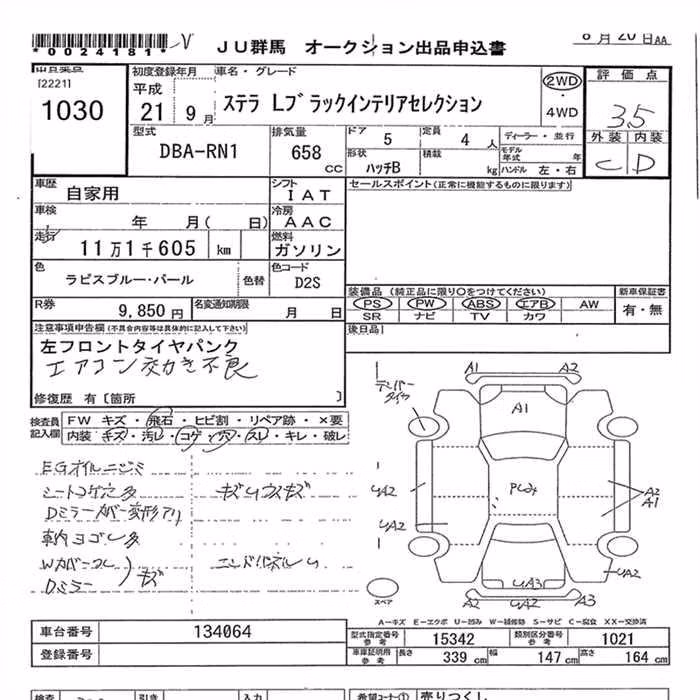 *0024181*
JU群馬 オークション出品申込書
8月20日AA
出品番号
[2221]
1030
初度登録年月
平成
21 9月
車名・グレード
ステラ Lブラックインテリアセレクション
2WD
・
4WD
評価点
3.5
外装 内装
C D
型式
DBA-RN1
排気量
658
CC
ドア
5
定員
4人
形状
ハッチB
積載
kg
ディーラー・並行
モデル年式 年
ハンドル 左・右
車歴
自家用
シフト
IAT
セールスポイント(正常に機能するものに限ります)
車検
年 月( 日)
冷房
AAC
走行
11万1千605 km
燃料
ガソリン
色
ラピスブルー・パール
色替
色コード
D2S
装備品(純正品に限り○をつけてください)
新車保証書
PS PW ABS エアB AW
SR ナビ TV カワ
有・無
R券
9,850円
名変通知期限
月 日
後日品
注意事項申告欄(不具合内容等は具体的に記入して下さい)
左フロントタイヤパンク
エアコン効き不良
修復歴 有〔箇所 〕
検査員
記入欄
FW キズ・飛石・ヒビ割・リペア跡・×要
内装・キズ・汚レ・コゲ・穴・スレ・キレ・破レ
EGオイルニジミ
シートコゲ穴多
Dミラーカバー変形アリ
車内ヨゴレ多
Wカバー
Dミラー
キズ
テンパー
タイヤ
A1 A2
A1
UA2
UA2
A2
A1
UA2
UA3
A2 UA2 A3
スペア
A-キズ E-エクボ U-凹み W-補修跡 S-サビ C-腐食 XX-交換済
車台番号
134064
型式指定番号
参考
15342
類別区分番号
参考
1021
登録番号
車庫証明用
参考
長さ
339 cm
幅
147 cm
高さ
164 cm
検査
引き
入力
希望コーナー①
売りつくし